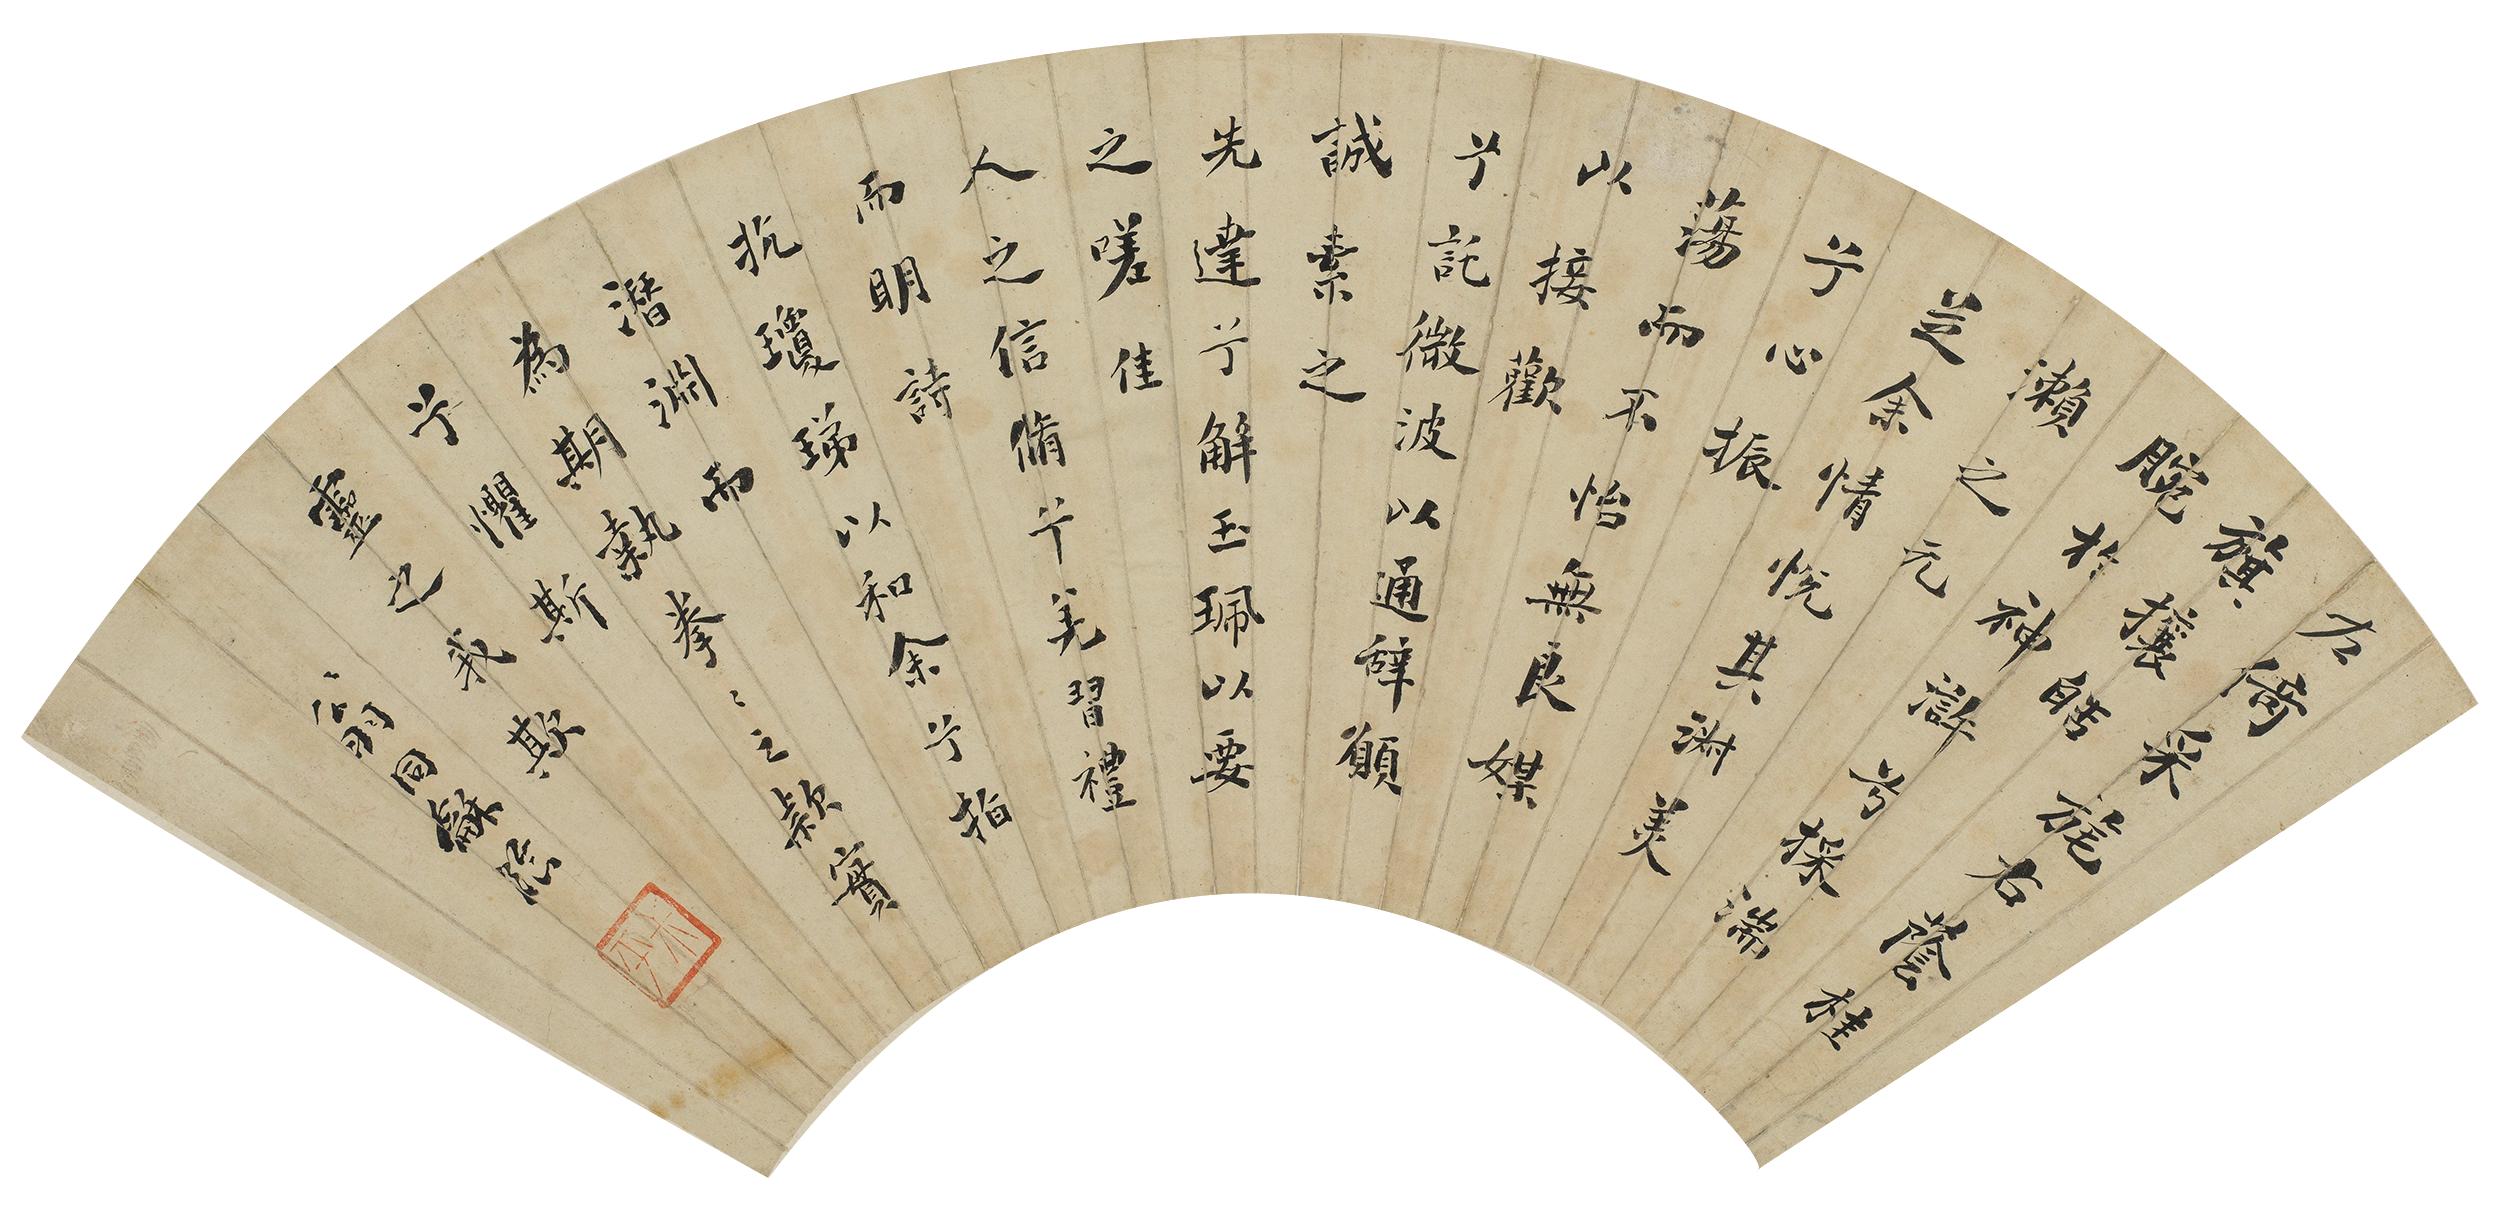 左倚采旄右蔭桂
旗攘皓
腕於神滸兮採湍
瀨之元
芝余情悅其淑美
兮心振
蕩而不怡無良媒
以接歡
兮託微波以通辭願
誠素之
先達兮解玉珮以要
之嗟佳
人之信脩兮羌習禮
而明詩
抗瓊珶以和余兮指
潛淵而
為期執拳〻之款實
兮懼斯
靈之我欺
翁同龢臨
叔平